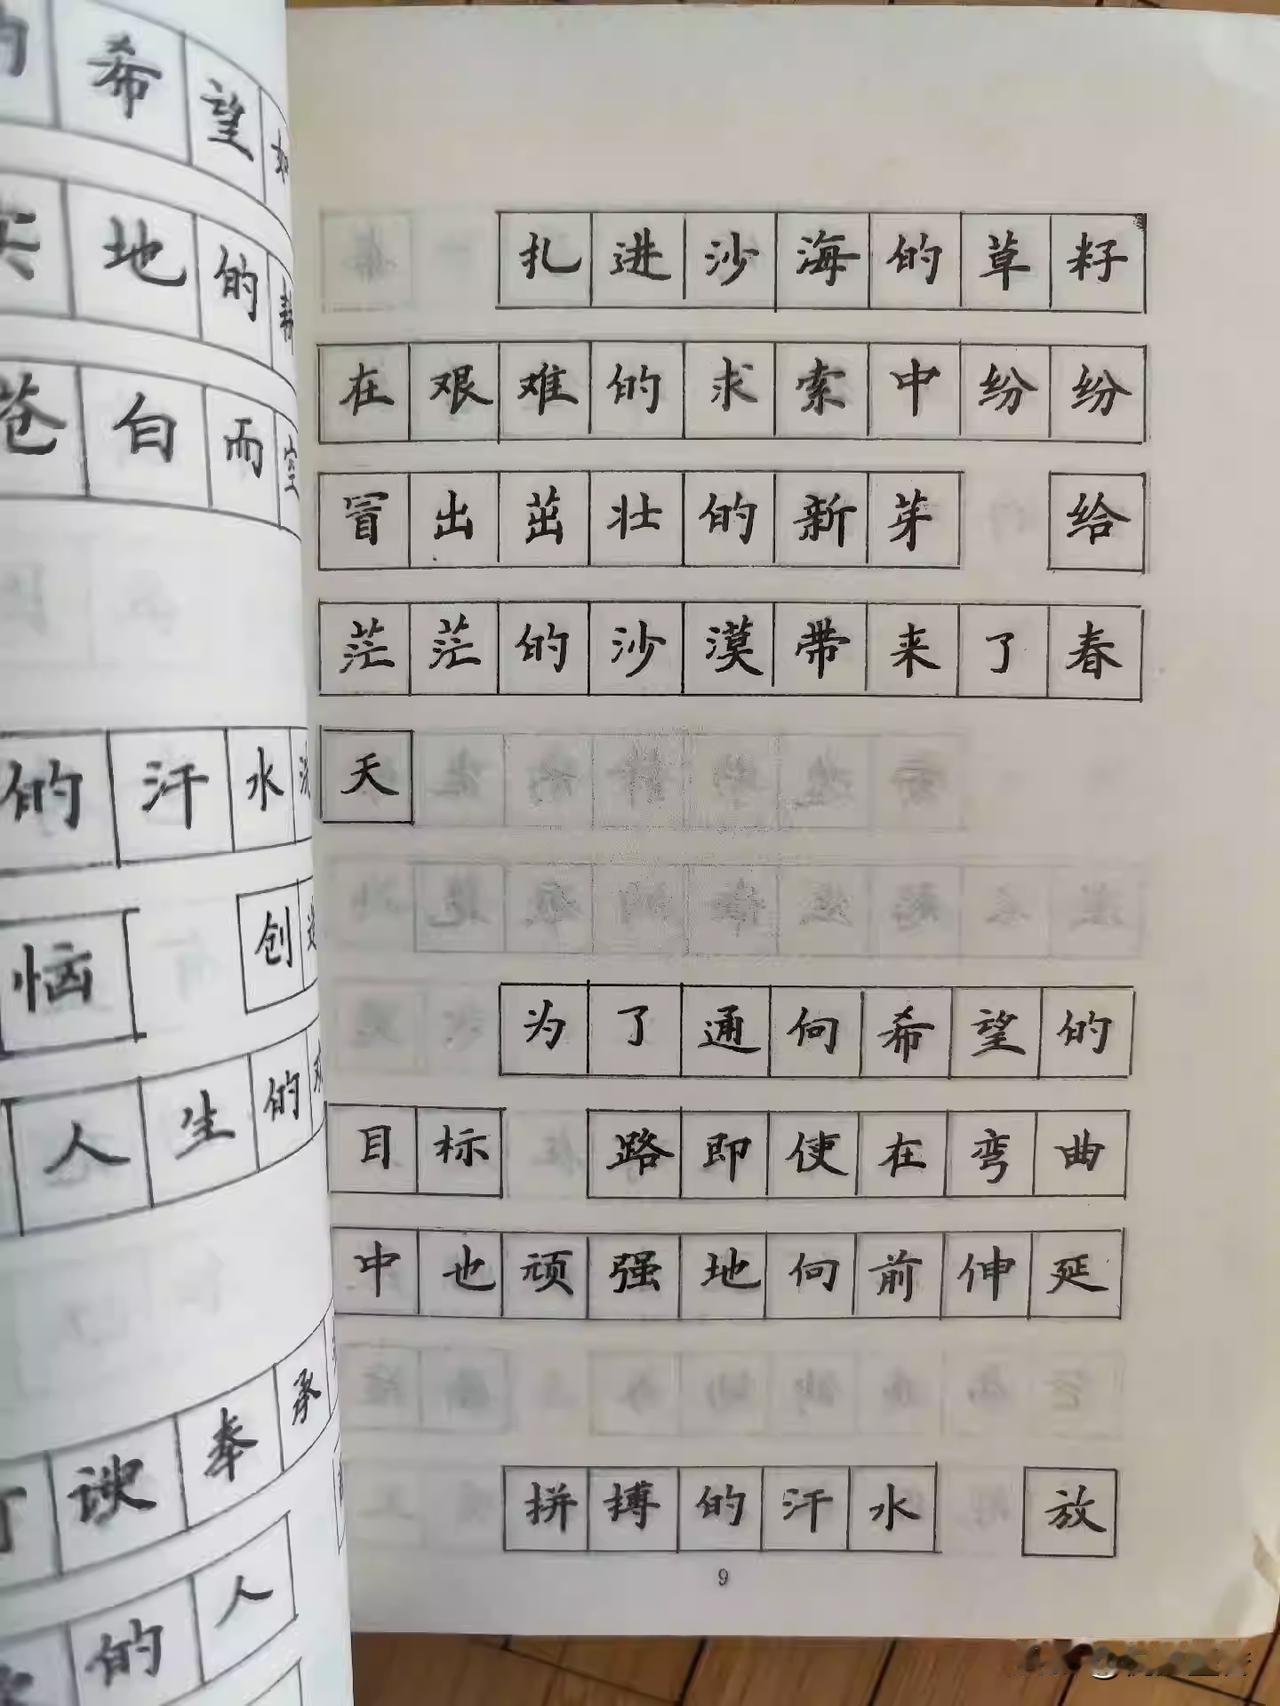 的希望如
实地的
苍白而空
的汗水
恼 创造
人生的
谀奉承
的人
扎进沙海的草籽
在艰难的求索中纷纷
冒出茁壮的新芽 给
茫茫的沙漠带来了春
天
为了通向希望的
目标 路即使在弯曲
中也顽强地向前伸延
拼搏的汗水 放
9